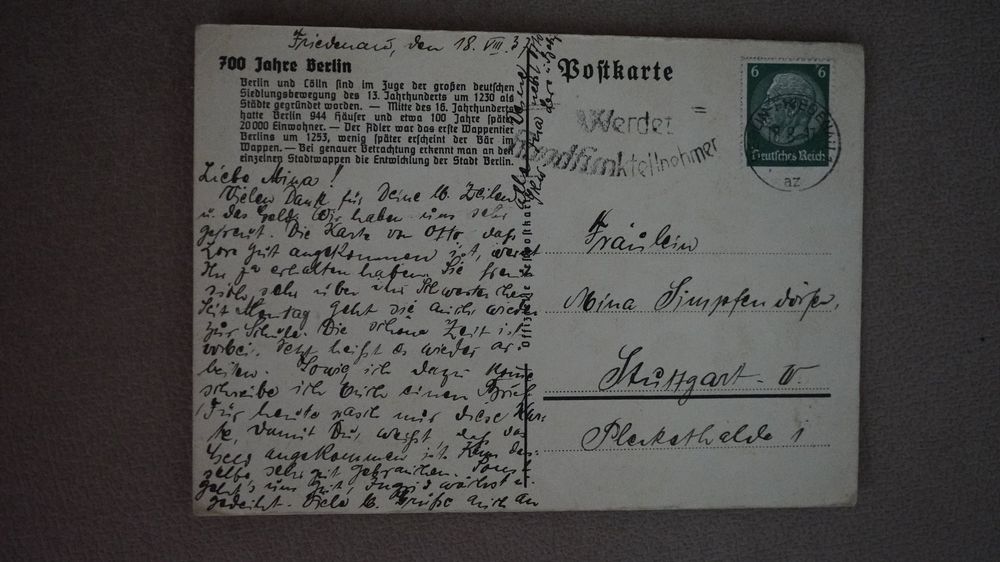 Friedenau, den 18. VIII. 37
700 Jahre Berlin
Berlin und Cölln sind im Zuge der großen deutschen
Siedlungsbewegung des 13. Jahrhunderts um 1230 als
Städte gegründet worden. — Mitte des 16. Jahrhunderts
hatte Berlin 944 Häuser und etwa 100 Jahre später
20000 Einwohner. — Der Adler war das erste Wappentier
Berlins um 1253, wenig später erscheint der Bär im
Wappen. — Bei genauer Betrachtung erkennt man an den
einzelnen Stadtwappen die Entwicklung der Stadt Berlin.
Liebe Mina!
Vielen Dank für Deine lb. Zeilen
u. das Geld. Wir haben uns sehr
gefreut. Die Karte von Otto, daß
Lore gut angekommen ist, werdet
Ihr ja erhalten haben. Sie freut
sich sehr über ihr Schwesterchen.
Seit Montag geht sie auch wieder
zur Schule. Die schöne Zeit ist
vorbei. Jetzt heißt es wieder ar-
beiten. Sowie ich dazu komme
schreibe ich Euch einen Brief.
Für heute rasch nur diese Kar-
te, damit Du weißt, daß das
Geld angekommen ist. Kann das-
selbe sehr gut gebrauchen. Sonst
geht's uns gut, Ingrid wächst u.
gedeiht. Viele lb. Grüße auch an
Postkarte
Werdet
Rundfunkteilnehmer
6 6
Deutsches Reich
az
Fräulein
Mina Simpfendörfer,
Stuttgart-W.
Pleckethalde 1